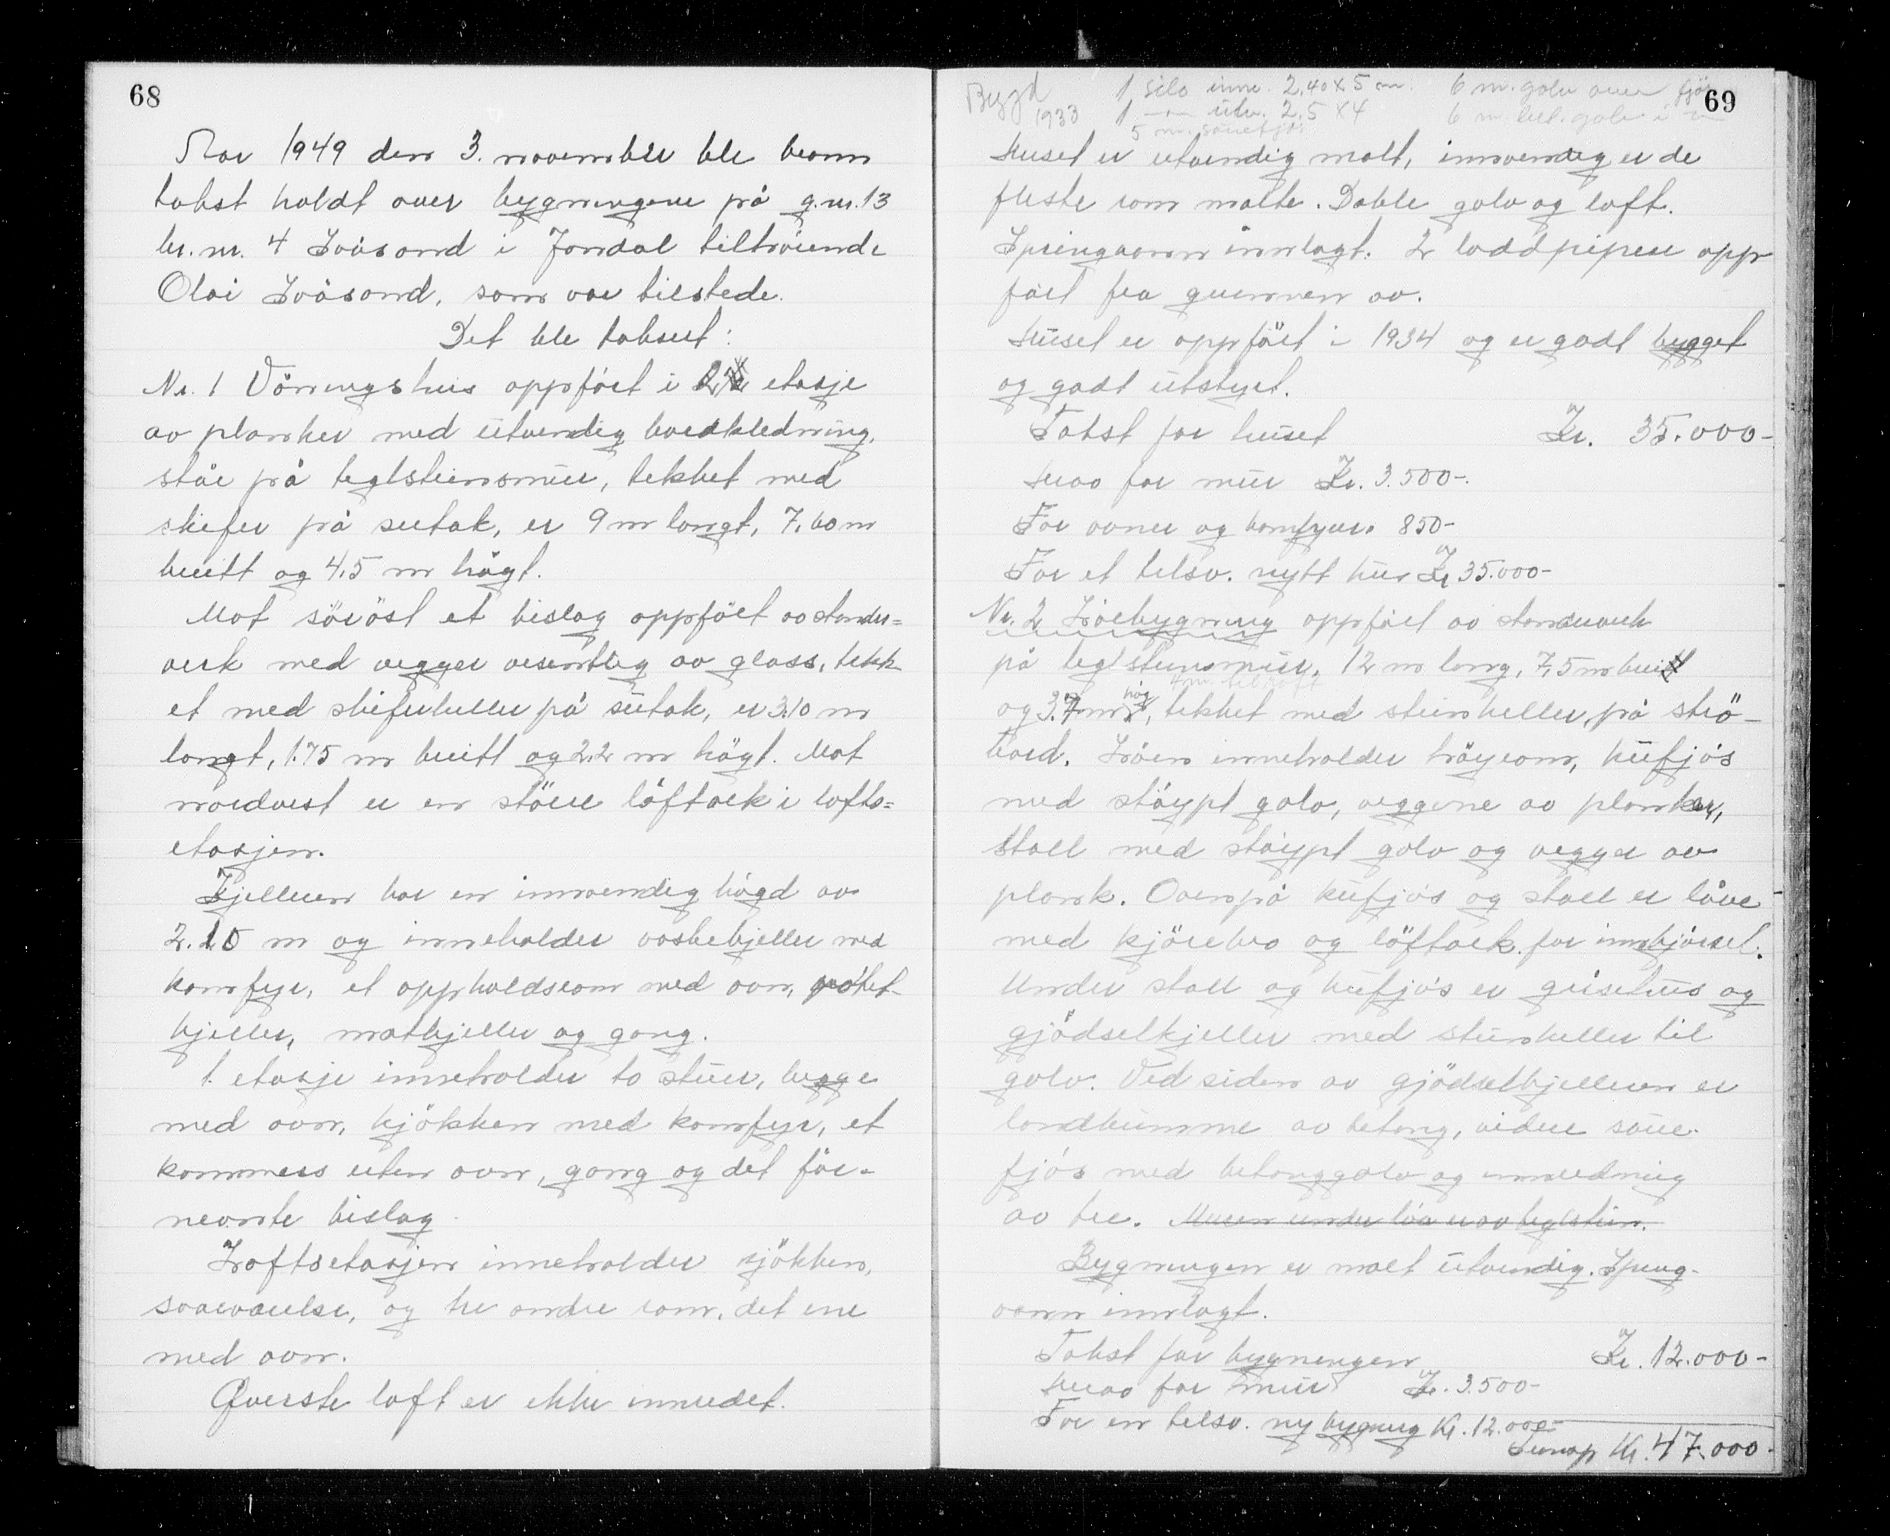 68
Aar 1949 den 3. november ble brann
takst holdt over bygningene på g.nr. 13
br.nr. 4 Svåsand i Jondal tilhörende
Olai Svåsand, som var tilstede.
Det ble taksert:
Nr. 1 Våningshus oppfört i 2 etasje
av planker med utvendig bordkledning,
står på teglsteinsmur, tekket med
skifer på sutak, er 9 m langt, 7,60 m
breitt og 4,5 m högt.
Mot söröst et bislag oppfört av stender=
verk med vegger vesentlig av glass, tekk-
et med skiferheller på sutak, er 3.10 m
langt, 1.75 m breitt og 2.2 m högt. Mot
nordvest er en större löftark i lofts=
etasjen.
Kjelleren har en innvendig högd av
2.10 m og inneholder vaskekjeller med
komfyr, et oppholdsrom med ovn, potet-
kjeller, matkjeller og gang.
1. etasje inneholder to stuer, begge
med ovn, kjökken med komfyr, et
kammers uten ovn, gang og det för-
nevnte bislag.
Loftsetasjen inneholder kjökken,
soveværelse, og tre andre rom, det ene
med ovn.
Överste loft er ikke innredet.
69
Bygd 1933
1 silo innv. 2,40 x 5 m.
1 — utv. 2,5 x 4
5 m. sauefjös
6 m. golv over fjös
6 m. bel. golv i
Huset er utvendig malt, innvendig er de
fleste rom malte. Doble golv og loft.
Springvann innlagt. 2 loddpiper opp
fört fra grunnen av.
Huset er oppfört i 1934 og er godt bygget
og godt utstyrt.
Takst for huset Kr. 35.000-
Herav for mur Kr. 3.500-.
For ovner og komfyrer 850-
For et tilsv. nytt hus Kr 35.000-
Nr. 2 Löebygning oppfört av stenderverk
på teglsteinsmur, 12 m lang, 7,5 m brei
og 3.7 m høg, tekket med steinheller på strö-
bord. Löen inneholder höyrom, kufjös
med stöypt golv, veggene av planker,
stall med stöypt golv og vegger av
plank. Ovenpå kufjös og stall er låve
med kjörebro og löftark for innkjörsel.
Under stall og kufjös er grisehus og
gjödselkjeller med steinheller til
golv. Ved siden av gjödselkjelleren er
landkumme av betong, videre saue-
fjös med betonggolv og innredning
av tre. Muren under löa er av teglstein.
Bygningen er malt utvendig. Spring-
vann innlagt.
Takst for bygningen Kr. 12.000-
Herav for mur Kr. 3.500-
For en tilsv. ny bygning Kr. 12.000-
Sumap Kr. 47.000-